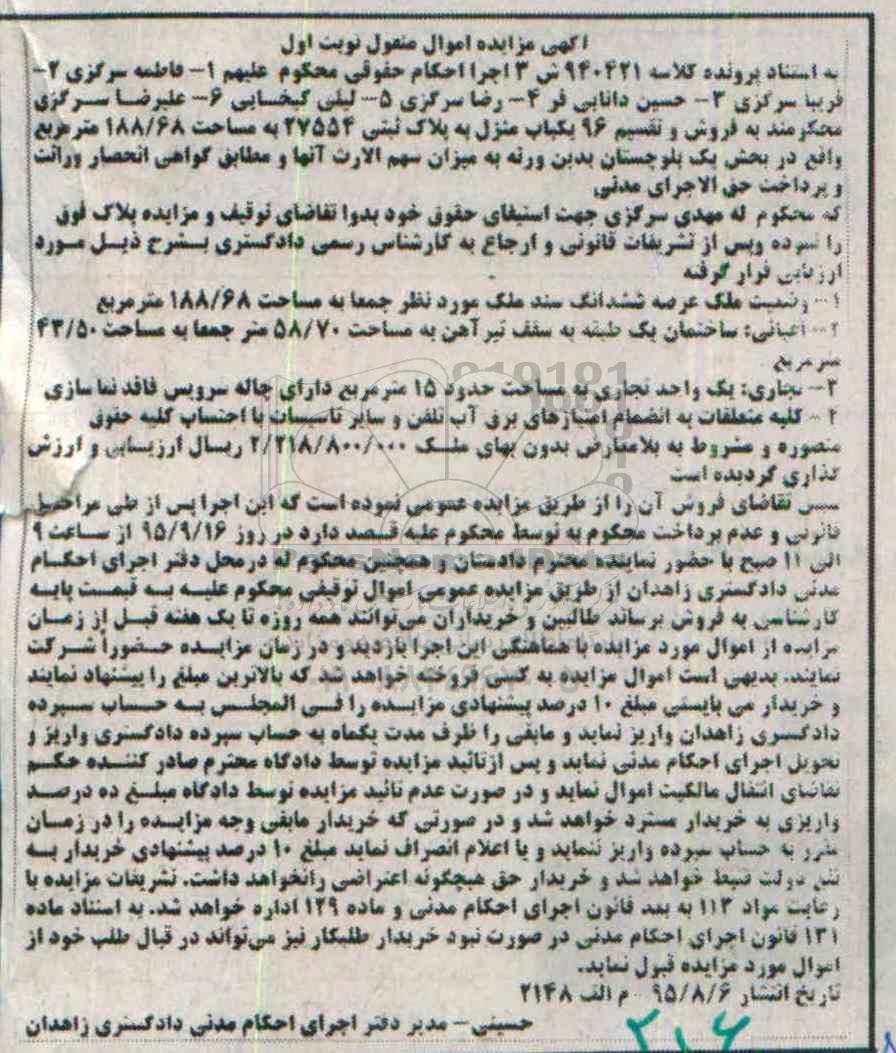 آگهی مزایده اموال منقول نوبت اول
به استناد پرونده کلاسه ۹۴۰۴۲۱ ش ۳ اجرا احکام حقوقی محکوم علیهم ۱- فاطمه سرگزی ۲-
فریبا سرگزی ۳- حسین دانایی فر ۴- رضا سرگزی ۵- لیلی کیخایی ۶- علیرضا سرگزی
محکومند به فروش و تقسیم ۹۶ یکباب منزل به پلاک ثبتی ۲۷۵۵۴ به مساحت ۱۸۸/۶۸ مترمربع
واقع در بخش یک بلوچستان بدین ورثه به میزان سهم الارث آنها و مطابق گواهی انحصار وراثت
و پرداخت حق الاجرای مدنی
که محکوم له مهدی سرگزی جهت استیفای حقوق خود بدوا تقاضای توقیف و مزایده پلاک فوق
را نموده وپس از تشریفات قانونی و ارجاع به کارشناس رسمی دادگستری بشرح ذیل مورد
ارزیابی قرار گرفته
۱- وضعیت ملک عرصه ششدانگ سند ملک مورد نظر جمعا به مساحت ۱۸۸/۶۸ مترمربع
۲- اعیانی: ساختمان یک طبقه به سقف تیر آهن به مساحت ۵۸/۷۰ متر جمعا به مساحت ۴۳/۵۰
متر مربع
۳- تجاری: یک واحد تجاری به مساحت حدود ۱۵ مترمربع دارای چاله سرویس فاقد نما سازی
۴- کلیه متعلقات به انضمام امتیازهای برق آب تلفن و سایر تاسیسات با احتساب کلیه حقوق
متصوره و مشروط به بلامعارض بدون بهای ملک ۲/۲۱۸/۸۰۰/۰۰۰ ریال ارزیابی و ارزش
گذاری گردیده است
سپس تقاضای فروش آن را از طریق مزایده عمومی نموده است که این اجرا پس از طی مراحل
قانونی و عدم پرداخت محکوم به توسط محکوم علیه قصد دارد در روز ۹۵/۹/۱۶ از ساعت ۹
الی ۱۱ صبح با حضور نماینده محترم دادستان و همچنین محکوم له درمحل دفتر اجرای احکام
مدنی دادگستری زاهدان از طریق مزایده عمومی اموال توقیفی محکوم علیه به قیمت پایه
کارشناسی به فروش برساند طالبین و خریداران می‌توانند همه روزه تا یک هفته قبل از زمان
مزایده از اموال مورد مزایده با هماهنگی این اجرا بازدید و در زمان مزایده حضوراً شرکت
نمایند. بدیهی است اموال مزایده به کسی فروخته خواهد شد که بالاترین مبلغ را پیشنهاد نمایند
و خریدار می بایستی مبلغ ۱۰ درصد پیشنهادی مزایده را فی المجلس به حساب سپرده
دادگستری زاهدان واریز نماید و مابقی را ظرف مدت یکماه به حساب سپرده دادگستری واریز و
تحویل اجرای احکام مدنی نماید و پس ازتائید مزایده توسط دادگاه محترم صادر کننده حکم
تقاضای انتقال مالکیت اموال نماید و در صورت عدم تائید مزایده توسط دادگاه مبلغ ده درصد
واریزی به خریدار مسترد خواهد شد و در صورتی که خریدار مابقی وجه مزایده را در زمان
مقرر به حساب سپرده واریز ننماید و یا اعلام انصراف نماید مبلغ ۱۰ درصد پیشنهادی خریدار به
نفع دولت ضبط خواهد شد و خریدار حق هیچگونه اعتراضی رانخواهد داشت. تشریفات مزایده با
رعایت مواد ۱۱۳ به بعد قانون اجرای احکام مدنی و ماده ۱۲۹ اداره خواهد شد. به استناد ماده
۱۳۱ قانون اجرای احکام مدنی در صورت نبود خریدار طلبکار نیز می‌تواند در قبال طلب خود از
اموال مورد مزایده قبول نماید.
تاریخ انتشار ۹۵/۸/۶ م الف ۲۱۴۸
حسینی- مدیر دفتر اجرای احکام مدنی دادگستری زاهدان
۲۱۶